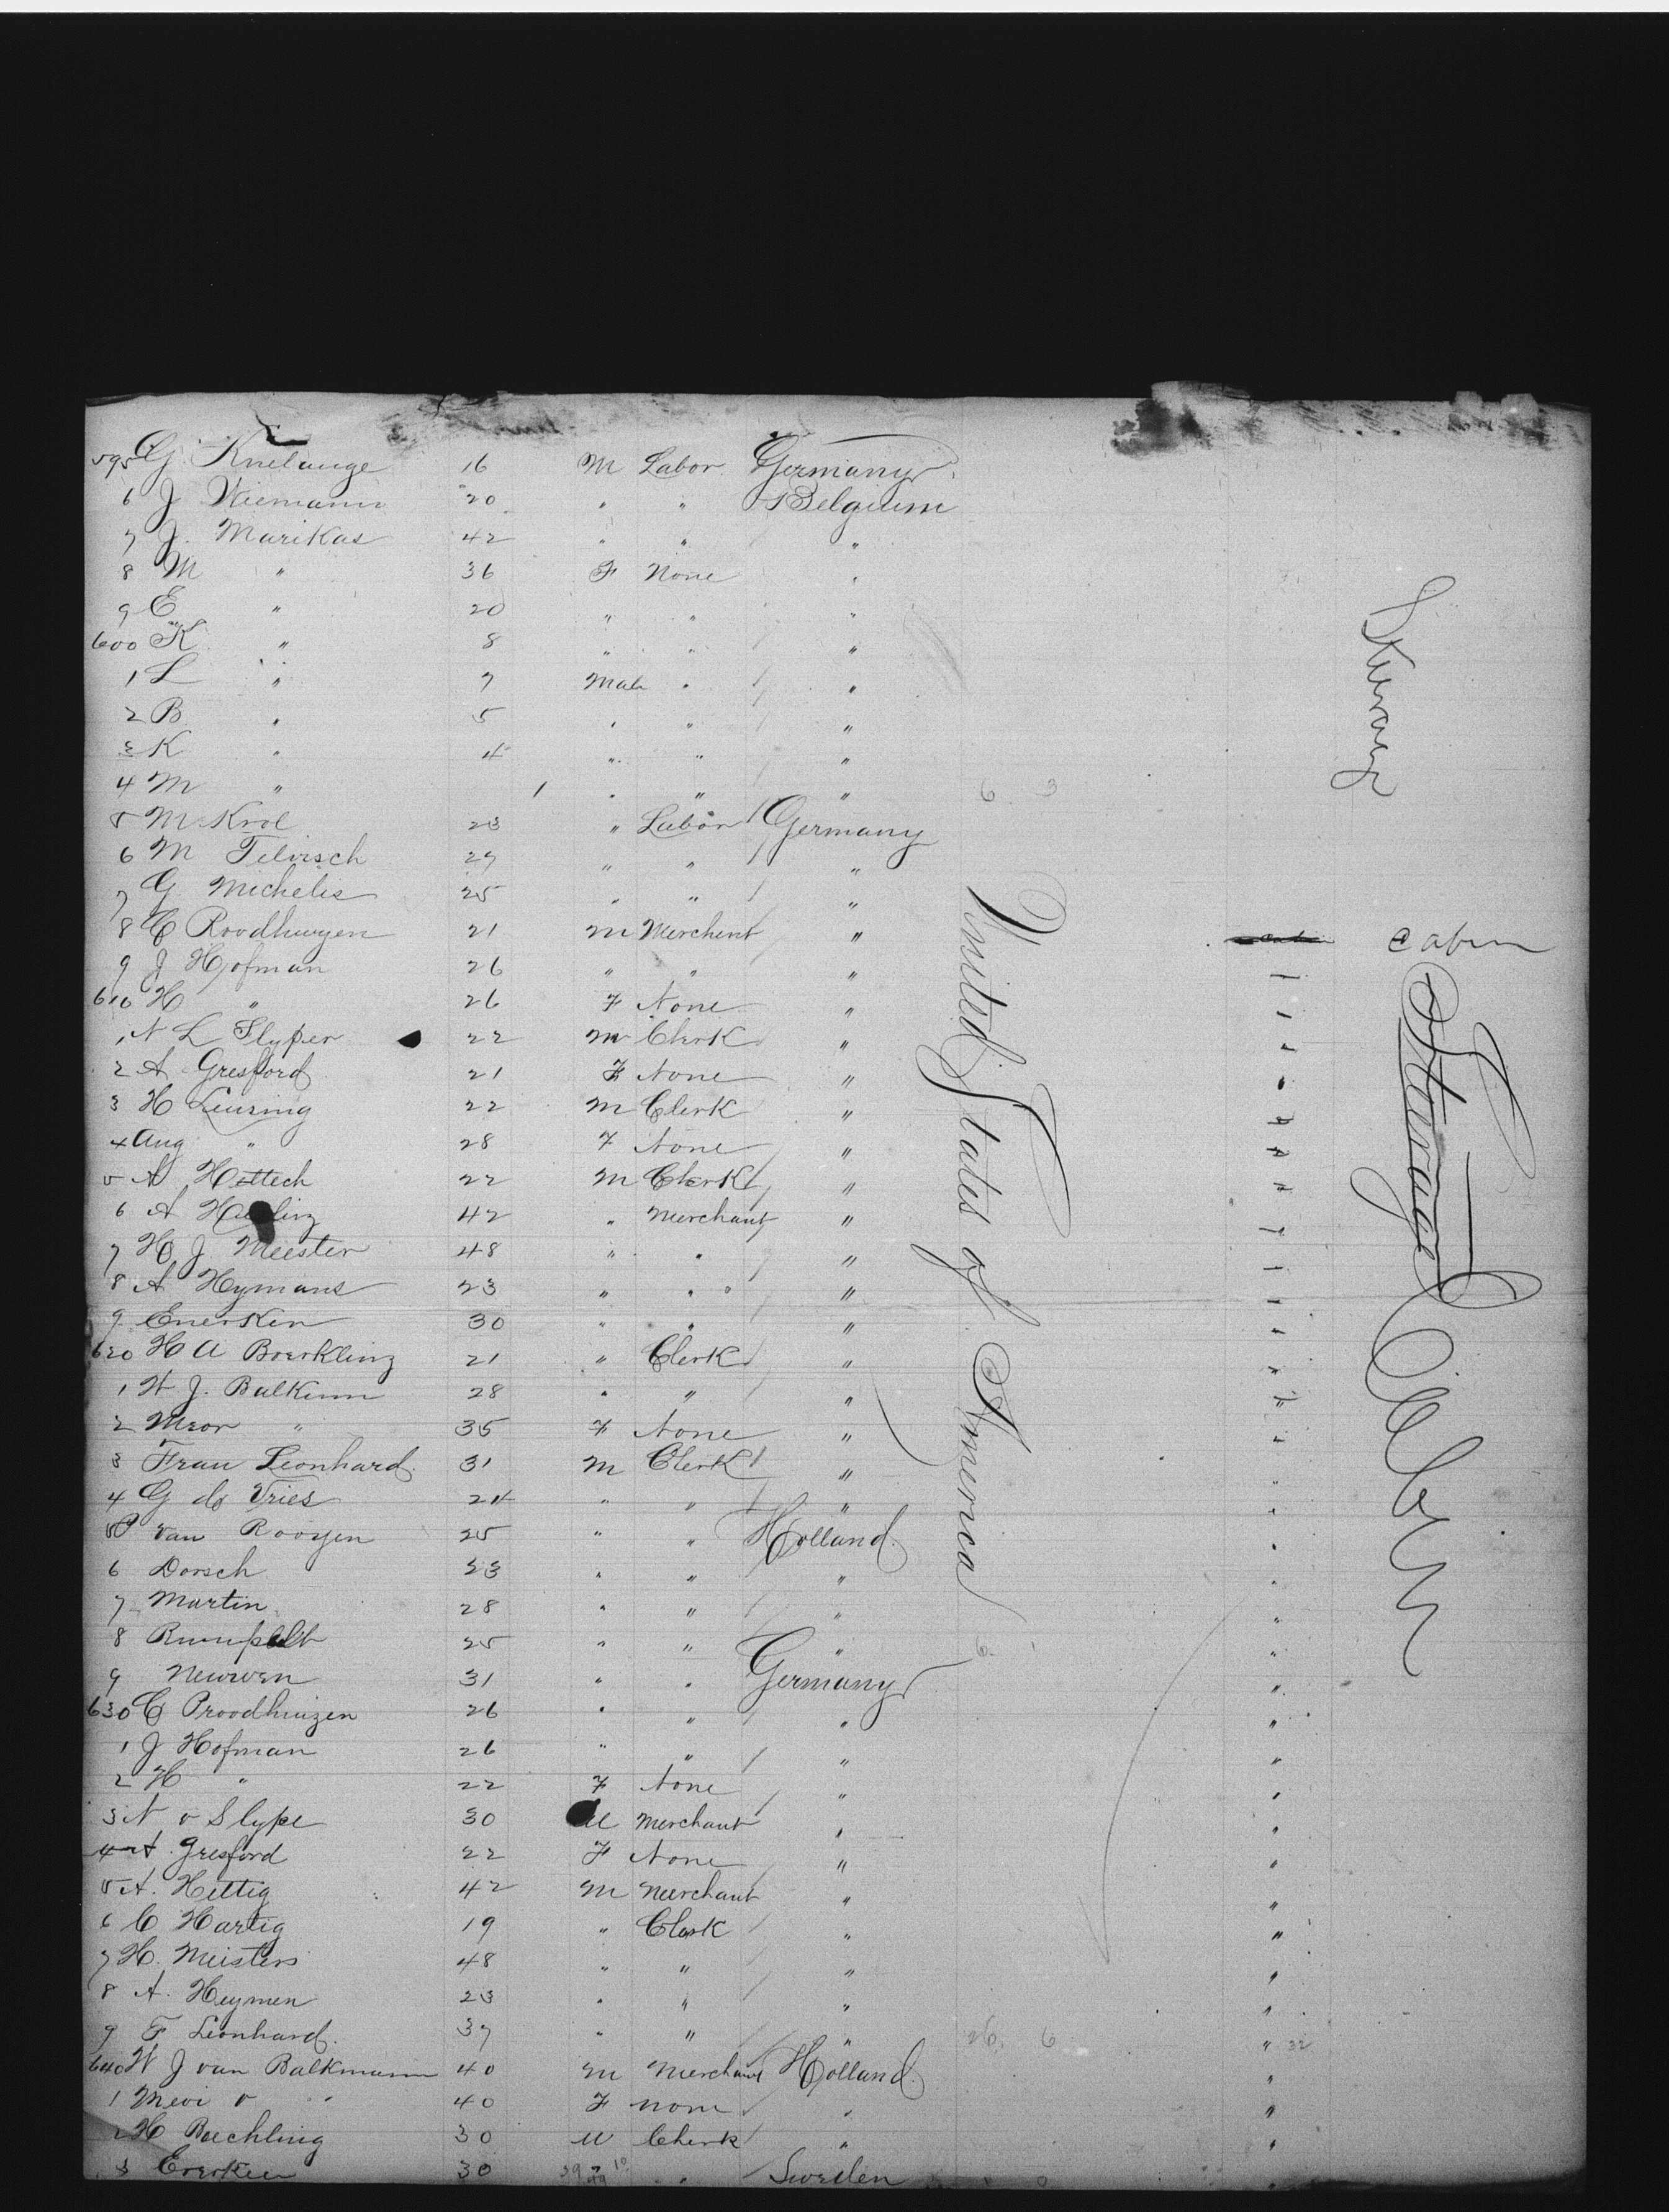 595 G. Knelange 16 M Labor Germany
6 J Niemann 20 " " Belgium
7 J. Marikas 42 " " "
8 M " 36 F None "
9 E " 20 " " "
600 K " 8 " " "
1 L " 7 Male " "
2 B " 5 " " "
3 K " 4 " " "
4 M " 1 " " " 6 3
5 M Krol 23 " Labor Germany
6 M 27 " " "
7 G Michelis 25 " " "
8 C Roodhuyen 21 M Merchent " cabin
9 J Hofman 26 " " "
610 H " 26 F None "
1 N L Slyper 22 M Clerk "
2 A Gresford 21 F None "
3 H Leusing 22 M Clerk "
4 Aug " 28 F None "
5 A Hettech 22 M Clerk "
6 A 42 " Merchant "
7 H J Meester 48 " " "
8 A Hymans 23 " " "
9 Enerken 30 " " "
620 H A Boerkling 21 " Clerk "
1 W J. Balkinn 28 " " "
2 Meor " 35 F None "
3 Frau Leonhard 31 M Clerk "
4 G de Vries 24 " " "
5 P van Rooyen 25 " " Holland
6 Dorsch 23 " " " "
7 Martin 28 " " " "
8 Rumpelt 25 " " " "
9 31 " " Germany "
630 C Proodhuizen 26 " " " "
1 J Hofman 26 " " " "
2 H " 22 F None " "
3 N v Slype 30 M Merchant " "
4 A. Gresford 22 F None " "
5 A. Hettig 42 M Merchant " "
6 C Hartig 19 " Clerk " "
7 H. Meisters 48 " " " "
8 A. Heymen 23 " " " "
9 F Leonhard. 37 " " " 26. 6 " 32
640 W J van Balkmann 40 M Merchant Holland "
1 Mevi v " 40 F none " "
2 H Buchling 30 M Clerk " "
3 Enerken 30 " " Sweden
United States of America
Steerage
Steerage